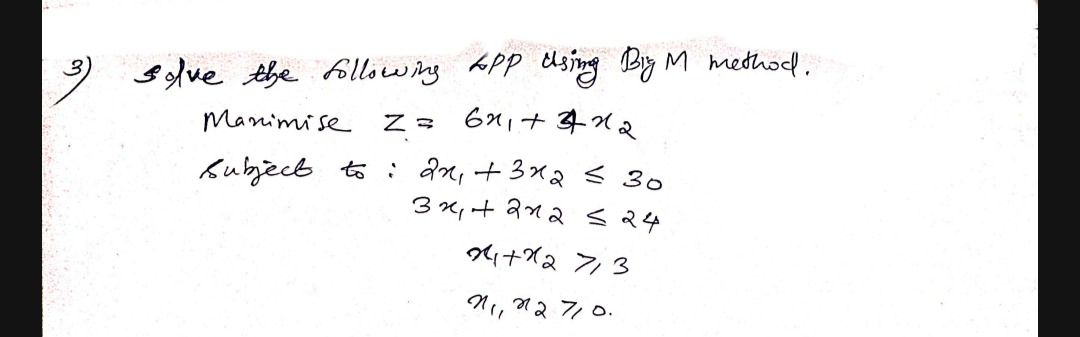 3) Solve the following LPP using Big M method.
Manimise Z = 6x₁ + 4x₂
Subject to : 2x₁ + 3x₂ ≤ 30
3x₁ + 2x₂ ≤ 24
x₁ + x₂ ≥ 3
x₁, x₂ ≥ 0.